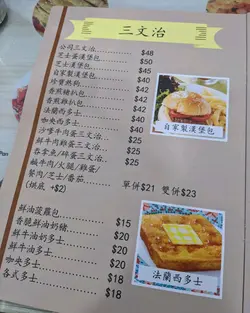 三文治
公司三文治 $48
芝士蛋漢堡包 $50
芝士漢堡包 $45
自家製漢堡包 $40
珍寶熱狗 $42
香煎豬扒包 $40
香煎雞扒包 $40
法蘭西多士
咖央西多士 $40
沙嗲牛肉蛋三文治 $25
鮮牛肉雞蛋三文治 $25
吞拿魚/碎蛋三文治 $25
鹹牛肉/火腿/雞蛋/
餐肉/芝士/番茄 單併$21 雙併$23
(烘底 +$2)
自家製漢堡包
鮮油菠蘿包 $15
香脆鮮油奶豬 $20
鮮牛油多士 $20
咖央多士 $18
各式多士 $18
法蘭西多士